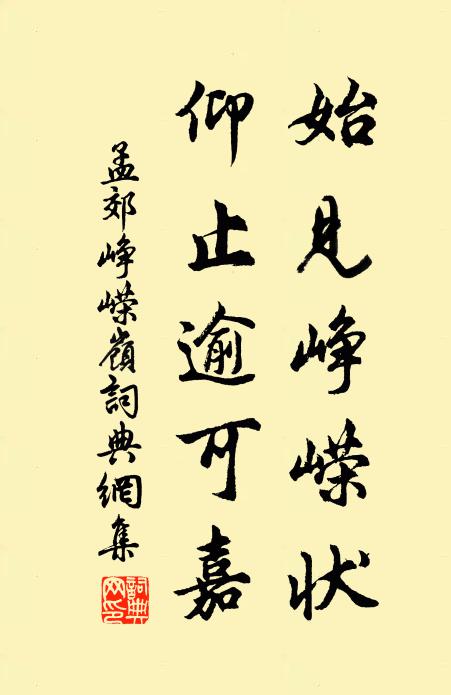 始見峥嵘状
仰止逾可嘉
孟郊峥嵘嶺詞典網集
詞典
网印